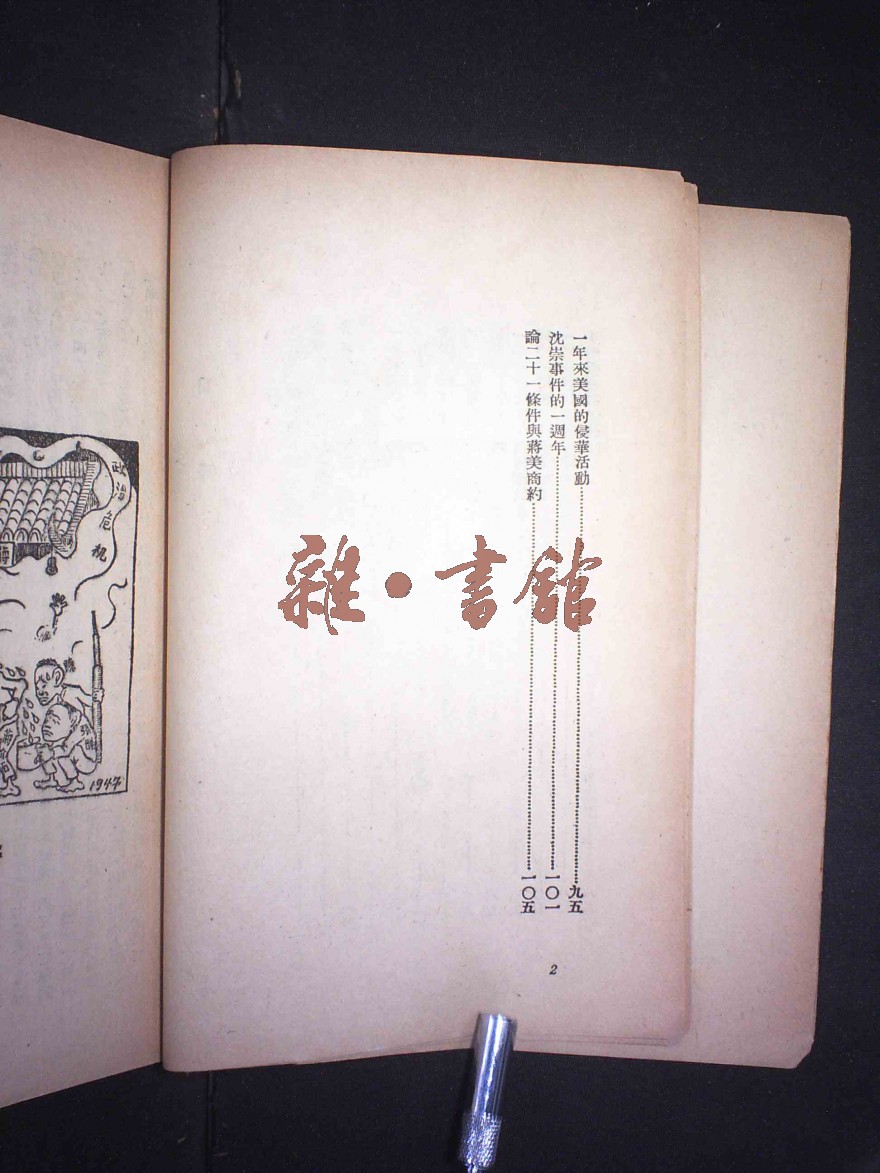 一年來美國的侵華活動……九五
沈崇事件的一週年……一〇一
論二十一條件與蔣美商約……一〇五
2
雜·書館
政治危机
1947